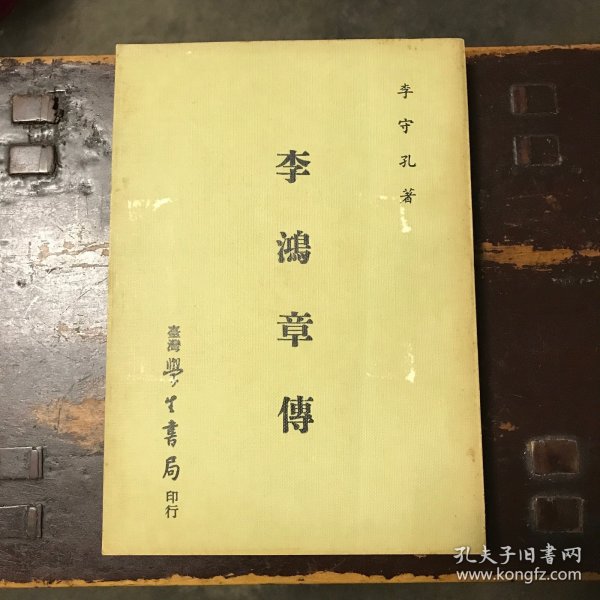 李守孔著
李鴻章傳
臺灣學生書局印行
孔夫子旧書网
www.kongfz.com